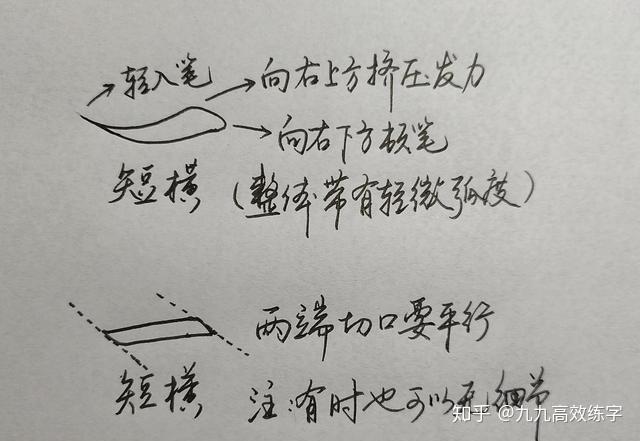 轻入笔
向右上方挤压发力
向右下方顿笔
短横（整体带有轻微弧度）
两端切口要平行
短横
注：有时也可以无细节
知乎 @九九高效练字